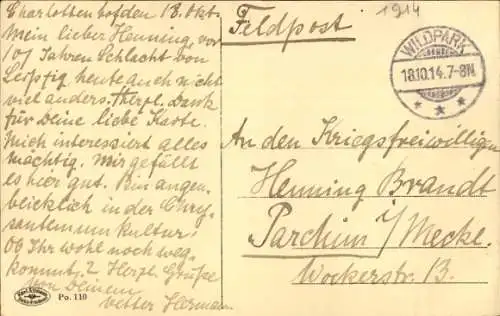 Charlottenhof den 18. Okt.
Mein lieber Henning, vor
101 Jahren Schlacht von
Leipzig heute auch nicht
viel anders. Herzl. Dank
für Deine liebe Karte.
Mich interessiert alles
mächtig. Mir gefällt
es hier gut. Bin augen-
blicklich in der Chry-
santemum Kultur.
Ob Ihr wohl noch weg-
kommt? Herzl. Grüße
von Deinem
Vetter Herman.
Po. 110
Feldpost
1914
WILDPARK
18.10.14.7-8N
An den Kriegsfreiwilligen
Henning Brandt
Parchim i/Meckl.
Wockerstr. 13.